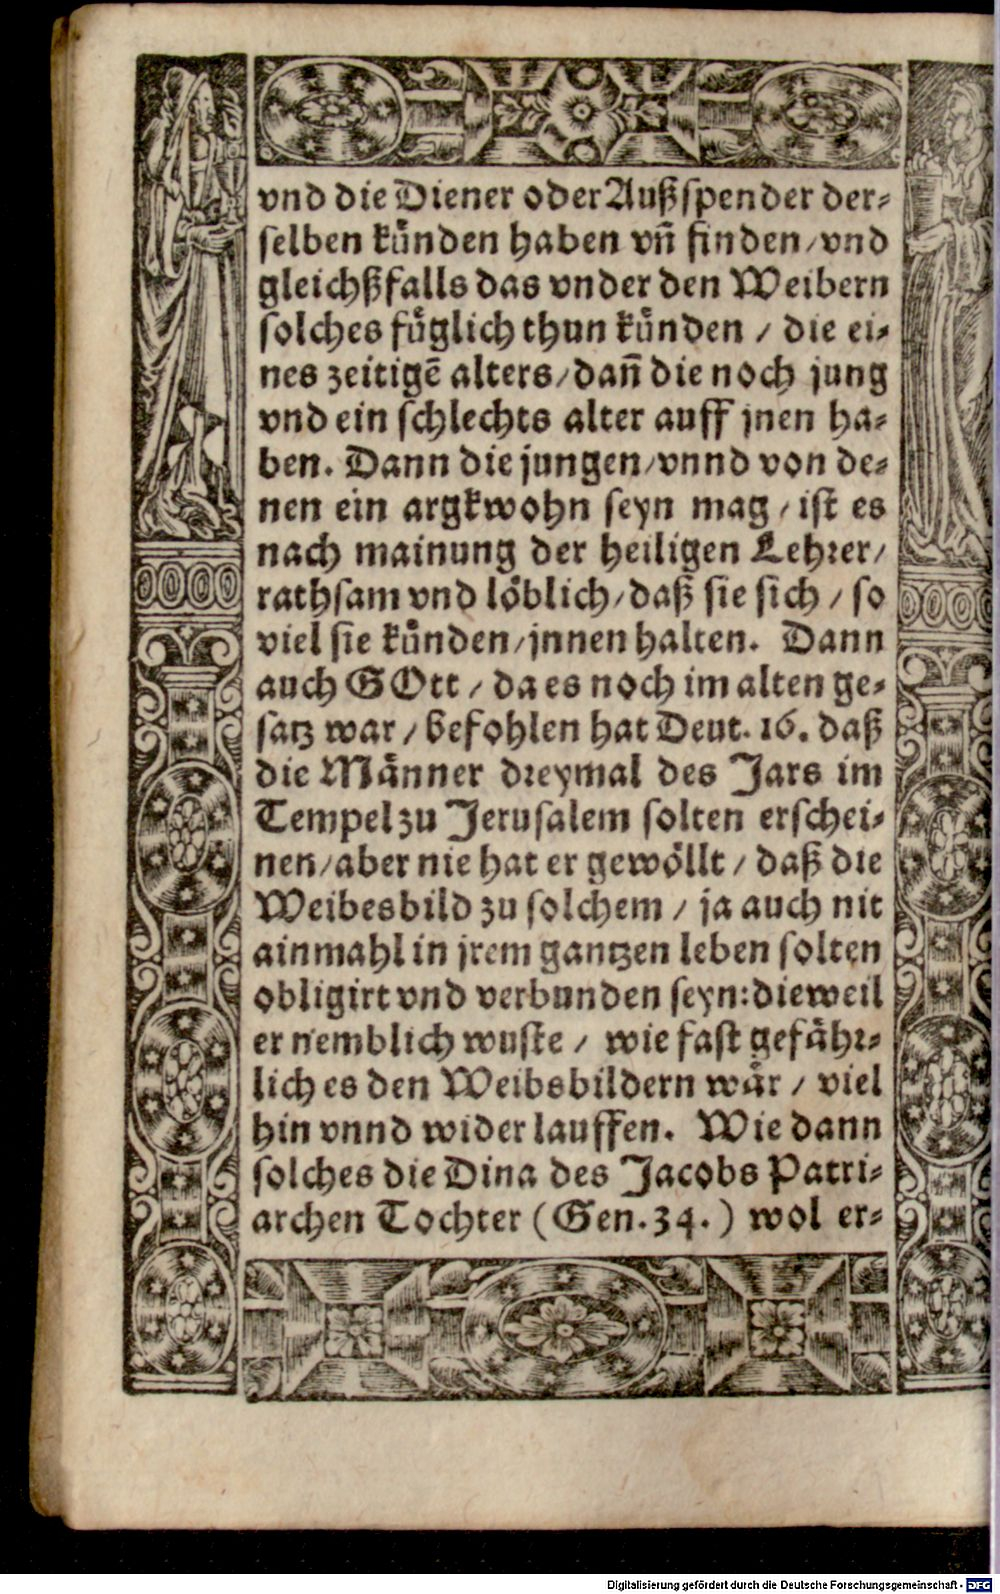 vnd die Diener oder Außspender der⸗
selben kuͤnden haben vñ finden/vnd
gleichßfalls das vnder den Weibern
solches fuͤglich thun kuͤnden / die ei⸗
nes zeitigẽ alters/dañ die noch jung
vnd ein schlechts alter auff jnen ha⸗
ben. Dann die jungen/vnnd von de⸗
nen ein argkwohn seyn mag / ist es
nach mainung der heiligen Lehrer/
rathsam vnd loͤblich/daß sie sich / so
viel sie kuͤnden/jnnen halten. Dann
auch GOtt / da es noch im alten ge⸗
satz war / befohlen hat Deut. 16. daß
die Maͤnner dreymal des Jars im
Tempel zu Jerusalem solten erschei⸗
nen/aber nie hat er gewoͤllt / daß die
Weibesbild zu solchem / ja auch nit
ainmahl in jrem gantzen leben solten
obligirt vnd verbunden seyn:dieweil
er nemblich wuste / wie fast gefaͤhr⸗
lich es den Weibsbildern waͤr / viel
hin vnnd wider lauffen. Wie dann
solches die Dina des Jacobs Patri⸗
archen Tochter (Gen. 34.) wol er⸗
Digitalisierung gefördert durch die Deutsche Forschungsgemeinschaft - DFG